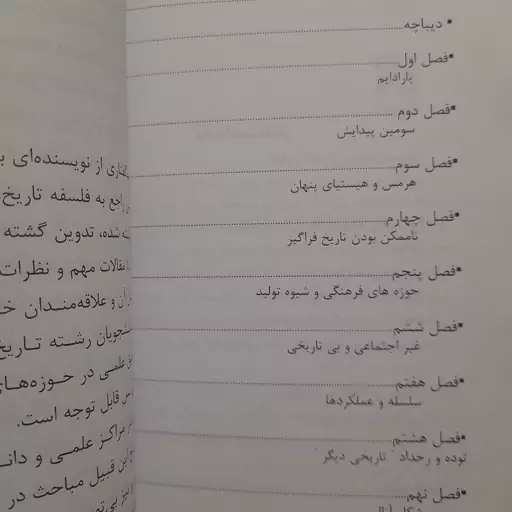 دیباچه
فصل اول
پارادایم
فصل دوم
سومین پیدایش
فصل سوم
هرمس و هیستیای پنهان
فصل چهارم
ناممکن بودن تاریخ فراگیر
فصل پنجم
حوزه های فرهنگی و شیوه تولید
فصل ششم
غیر اجتماعی و بی تاریخی
فصل هفتم
سلسله و عملکردها
فصل هشتم
توده و رخداد ˝ تاریخی دیگر ˝
فصل نهم
از نویسنده‌ای
راجع به فلسفه تاریخ
شده، تدوین گشته
مقالات مهم و نظرات
آن و علاقه‌مندان
رشته تاریخ
علمی در حوزه‌های
قابل توجه است.
مراکز علمی و
این قبیل مباحث در